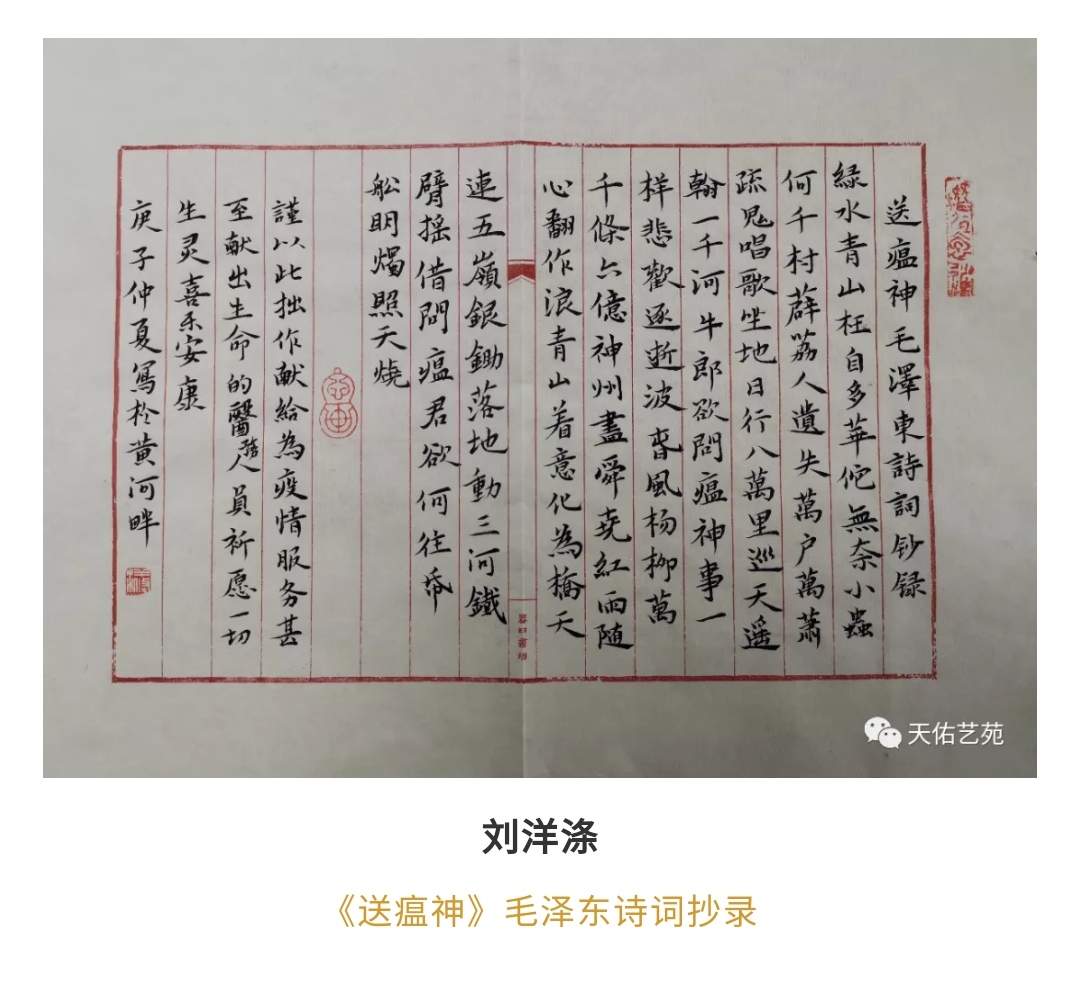 送瘟神毛澤東詩詞鈔録
緑水青山枉自多華佗無奈小蟲
何千村薜荔人遺失萬户萬蕭
疏鬼唱歌坐地日行八萬里巡天遥
翰一千河牛郎欲問瘟神事一
样悲歡逐逝波春風杨柳萬
千條六億神州盡舜尭紅雨随
心翻作浪青山着意化為橋天
連五嶺銀鋤落地動三河鐵
臂摇借問瘟君欲何往帋
船明燭照天燒
謹以此拙作献給為疫情服务甚
至献出生命的醫務人員祈愿一切
生灵喜乐安康
庚子仲夏寫於黄河畔
天佑艺苑
刘洋涤
《送瘟神》毛泽东诗词抄录